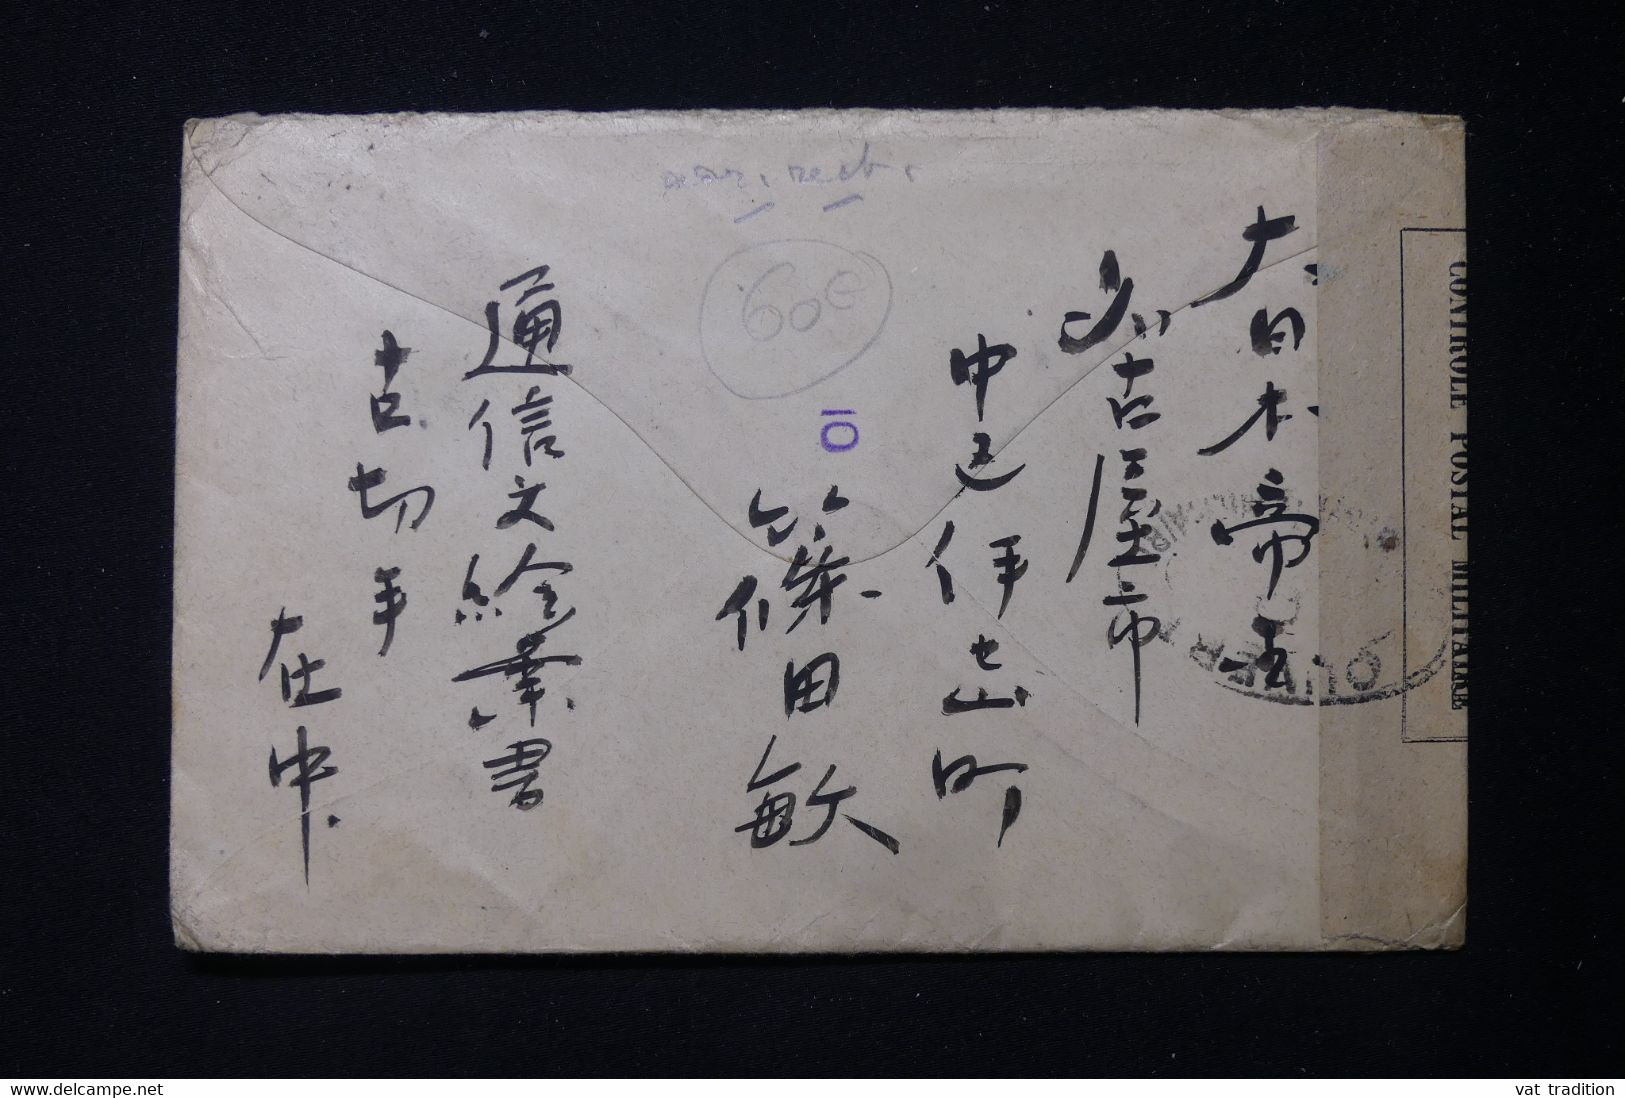 大日本帝国
名古屋市
中区伊セ山町
篠田敏
通信文絵葉書
古切手
在中
60e
10
CONTROLE POSTAL MILITAIRE
OUVERT
vat tradition
www.delcampe.net